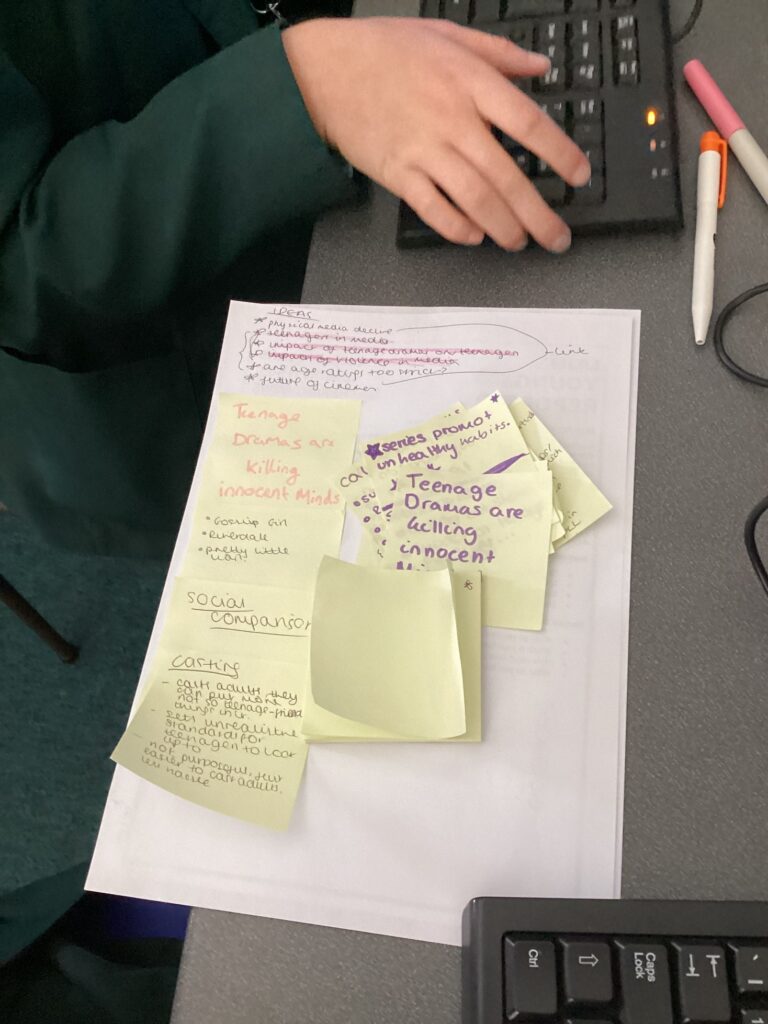 IDEAS
* physical media decline
* teenagers in media
* impact of teenage dramas on teenagers
* impact of violence in media
* are age ratings too strict?
* future of cinema
Link
Teenage
Dramas are
killing
innocent Minds
• Gossip Girl
• Riverdale
• pretty little
liars
social
comparison
casting
- casts adults they
can put more
not so teenage-friend
things in it.
- sets unrealistic
standards for
teenagers to look
up to
- not purposeful, just
easier to cast adults.
series promot
unhealthy habits.
Teenage
Dramas are
killing
innocent
Ctrl
Caps
Lock